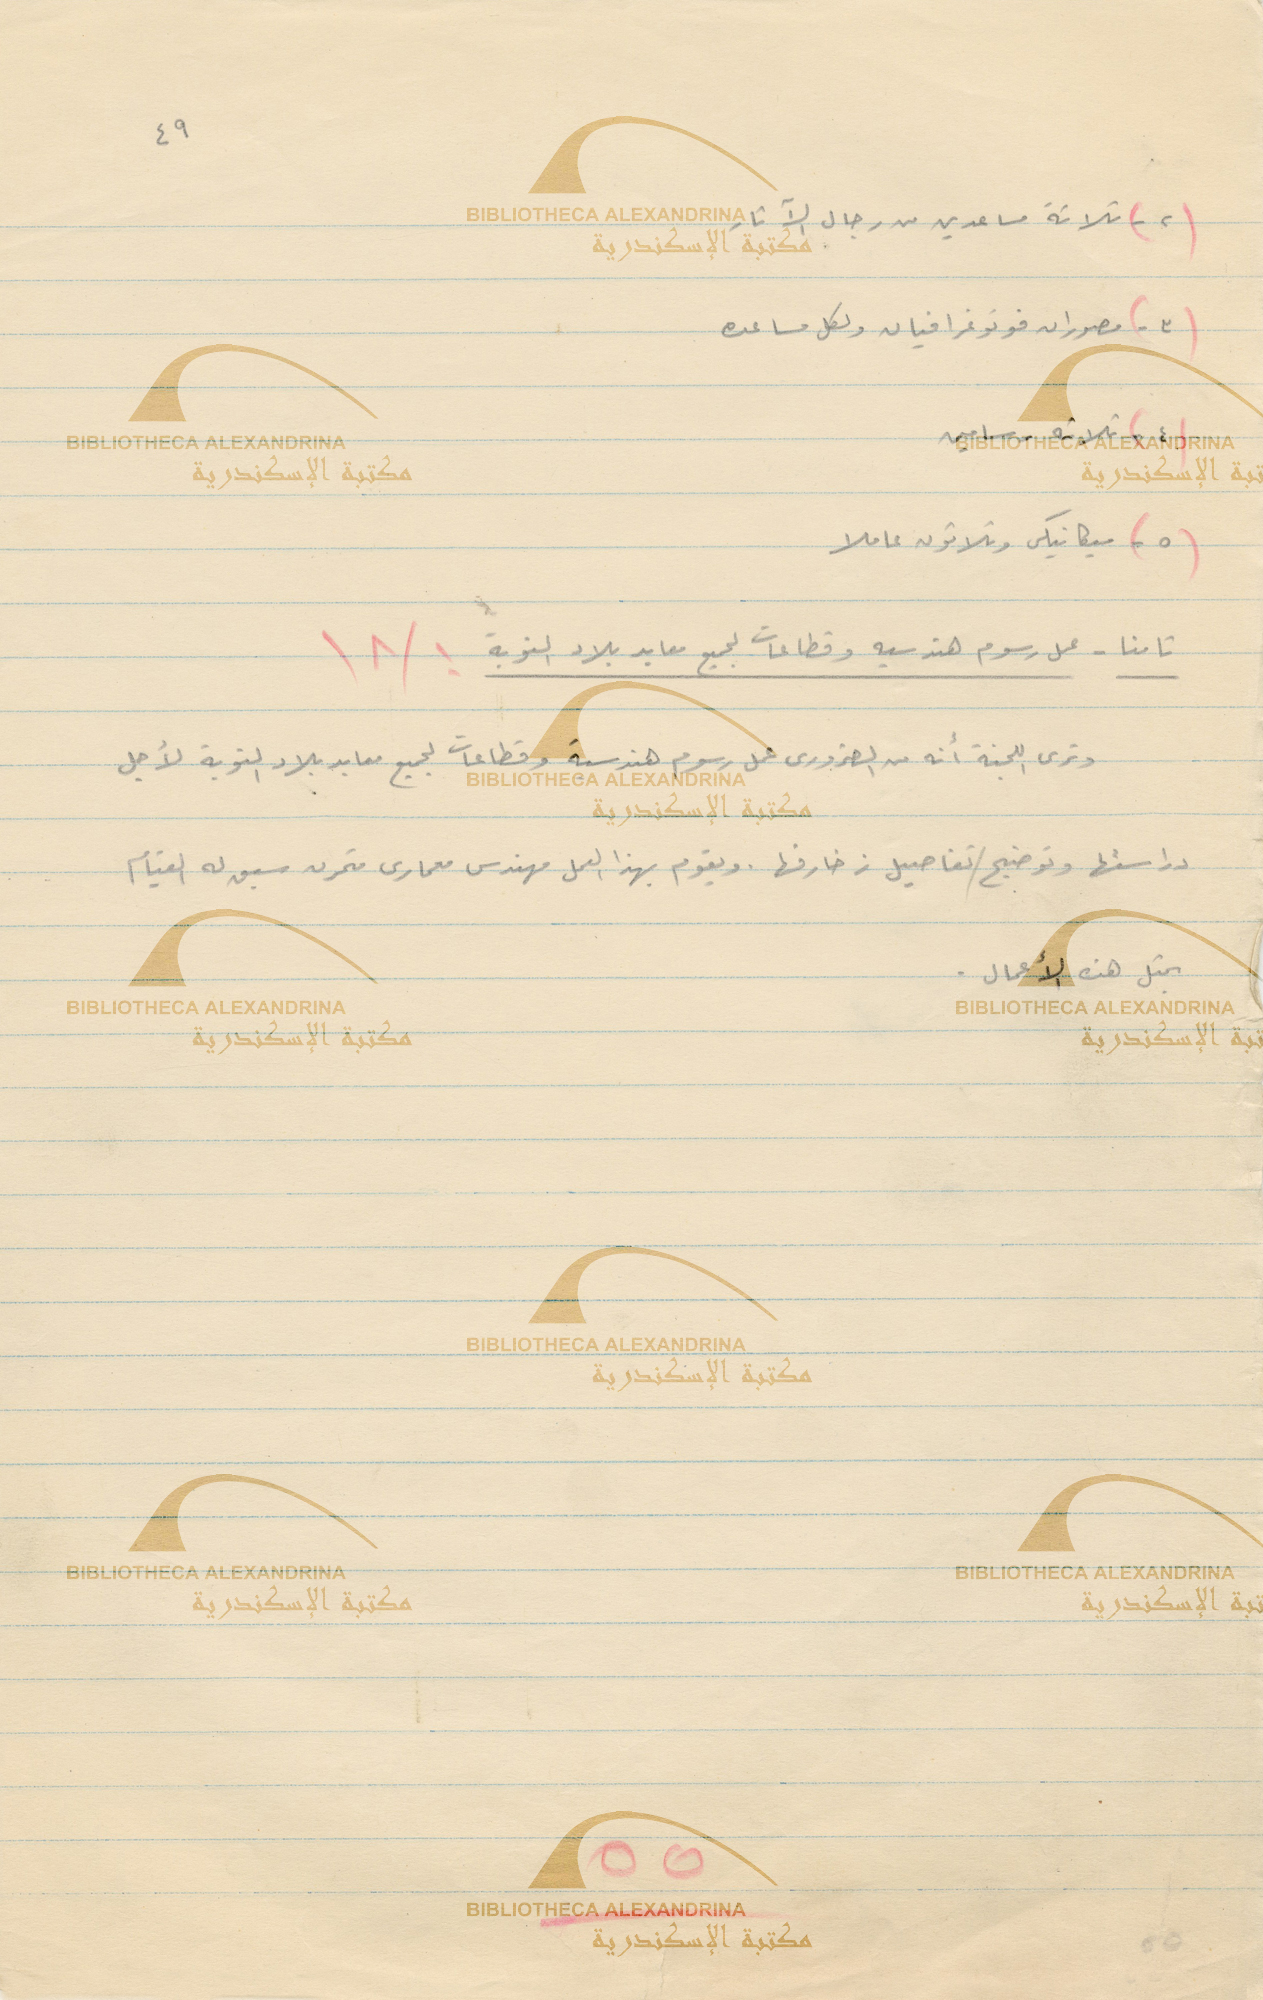 ٤٩
(٢ -) ثلاثة مساعدين من رجال الآثار
(٣ -) مصوران فوتوغرافيان ولكل مساعده
(٤ -) ثلاثة رسامين
(٥ -) ميكانيكى وثلاثون عاملا
ثامنا - عمل رسوم هندسيه وقطاعات لجميع معابد بلاد النوبة
وترى اللجنة أنه من الضرورى عمل رسوم هندسية وقطاعات لجميع معابد بلاد النوبة لأجل
دراستها وتوضيح تفاصيل زخارفها . ويقوم بهذا العمل مهندس معمارى متمرن سبق له القيام
بمثل هذه الأعمال .
٥٥
٥٥
BIBLIOTHECA ALEXANDRINA
مكتبة الإسكندرية